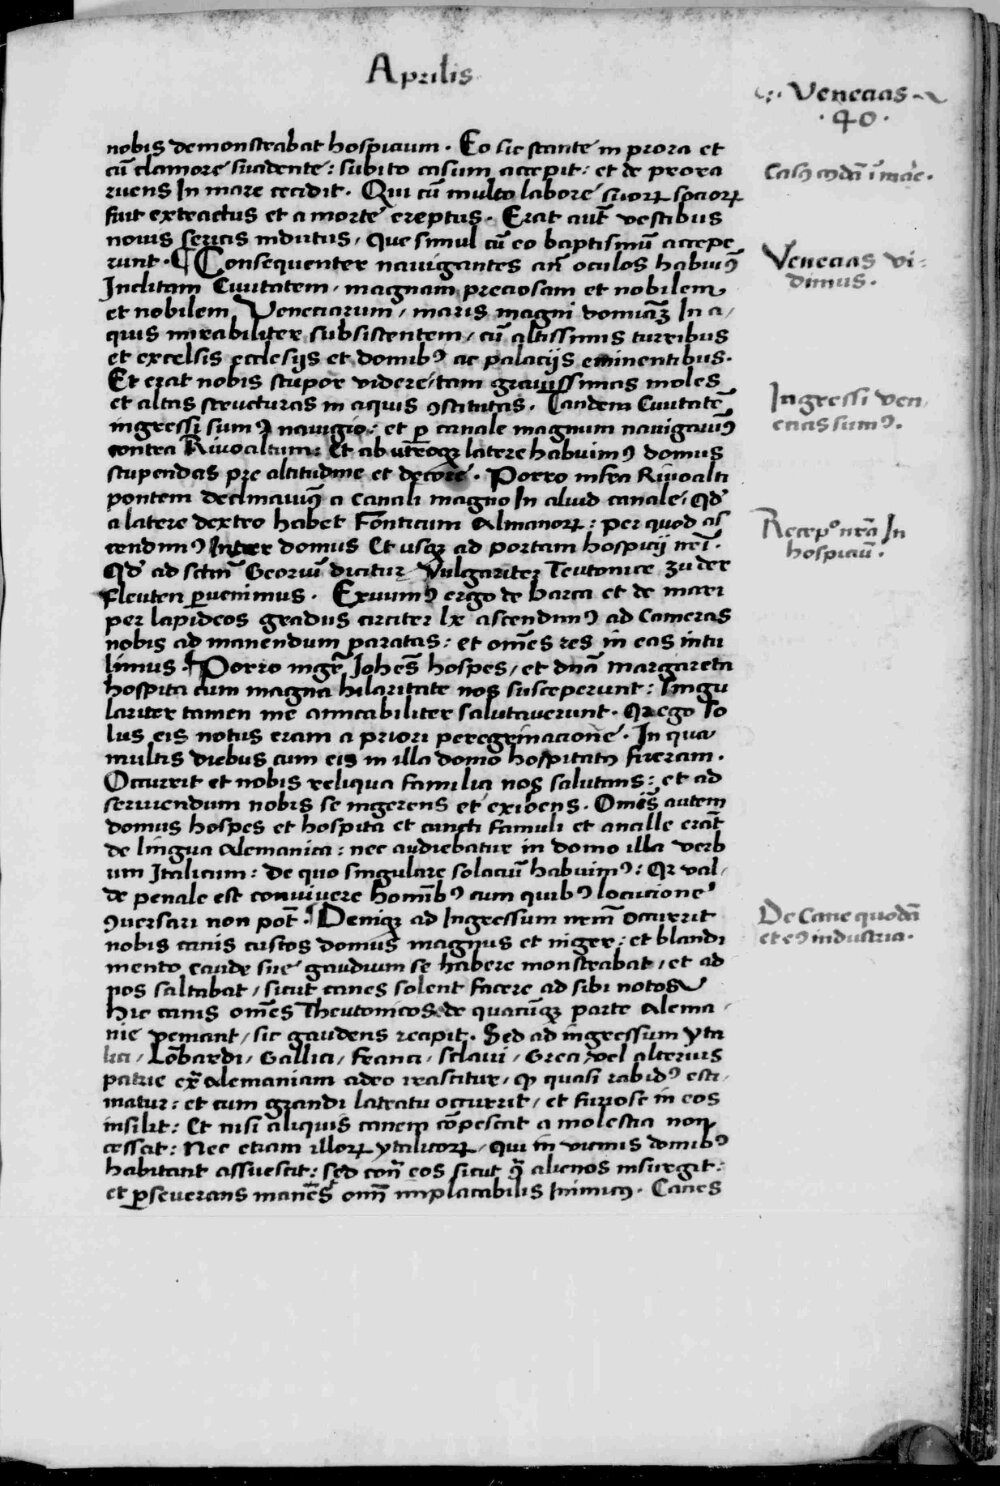 Aprilis
Venecias
40
nobis demonstrabat hospicium. Eo sic stante in prora et
cū clamore suadente: subito casum accepit: et de prora
ruens In mare cecidit. Qui cū multo labore suorꝝ sociorꝝ
fuit extractus et a morte ereptus. Erat aūt vestibus
novis sericis indutus, que simul cū eo baptismū accepe
runt. ¶ Consequenter navigantes añ oculos habuimꝰ
Inclitam Civitatem, magnam preciosam et nobilem
et nobilem Veneciarum, maris magni domīaꝫ In a,
quis mirabiliter subsistentem, cū altissimis turribus
et excelsis ecclesijs et domibꝰ ac palacijs eminentibus.
Et erat nobis stupor videre, tam gravissimas moles
et altas structuras in aquis ꝯstitutas. Tandem Civitatē
ingressi sumꝰ navigio: et ꝑ canale magnum navigavimꝰ
contra Rivoaltum: Et ab utroqꝫ latere habuimꝰ domus
stupendas pre altitudine et decore. Porro infra Rivoalti
pontem declinavimꝰ a canali magno In aliud canale, qd̄
a latere dextro habet Fonticum Almanorꝝ: per quod as
cendimꝰ Inter domus Et usqꝫ ad portam hospicij nr̄i.
Qd̄ ad sctm̄ Georiū dicitur Vulgariter Teutonice zu der
Fleuten ꝑvenimus. Exivimꝰ ergo de barca et de mari
per lapideos gradus circiter lx ascendimꝰ ad Cameras
nobis ad manendum paratas: et om̄es res in eas intu
limus. ¶ Porro mgr̄ Johēs hospes, et dn̄a Margareta
hospita cum magna hilaritate nos susceperunt: singu
lariter tamen me amicabiliter salutaverunt. Qr ego so
lus eis notus eram a priori peregrinacione. In qua
multis diebus cum eis in illa domo hospitatꝰ fueram.
Occurrit et nobis reliqua familia nos salutans: et ad
serviendum nobis se ingerens et exibens. Om̄es autem
domus hospes et hospita et cuncti famuli et ancille erāt
de lingua Alemanica: nec audiebatur in domo illa verb
um Italicum: de quo singulare solaciū habuimꝰ: Qr val,
de penale est convivere hominibꝰ cum quibꝰ locucione
ꝯversari non pōt. ¶ Deniqꝫ ad Ingressum nr̄m occurrit
nobis canis custos domus magnus et niger: et blandi
mento caude sue gaudium se habere monstrabat, et ad
nos saltabat, sicut canes solent facere ad sibi notos
hic canis om̄es Theutonicos de quacūqꝫ parte Alema,
nie veniant, sic gaudens recipit. Sed ad ingressum yta
lici, Lōbardi, Gallici, Franci, sclavi, Greci, vel alterius
patrie ex̄ Alemaniam adeo irascitur, ꝙ quasi rabidꝰ esti,
matur: et cum grandi latratu occurrit, et furiose in eos
insilit: Et nisi aliquis canem cōpescat a molestia non
cessat: Nec etiam illorꝝ ytalicorꝝ, qui in vicinis domibꝰ
habitant assuescit: sed cont̄ eos sicut ꝯ̄ alienos insurgit:
et ꝑseverans manēs omīn implacabilis Inimicꝰ. Canes
Casꝰ cuꝰdā ī mare.
Venecias vi=
dimus.
Ingressi ven,
ecias sumꝰ.
Recepº nrā In
hospiciū.
De Cane quodā
et eꝰ industria.